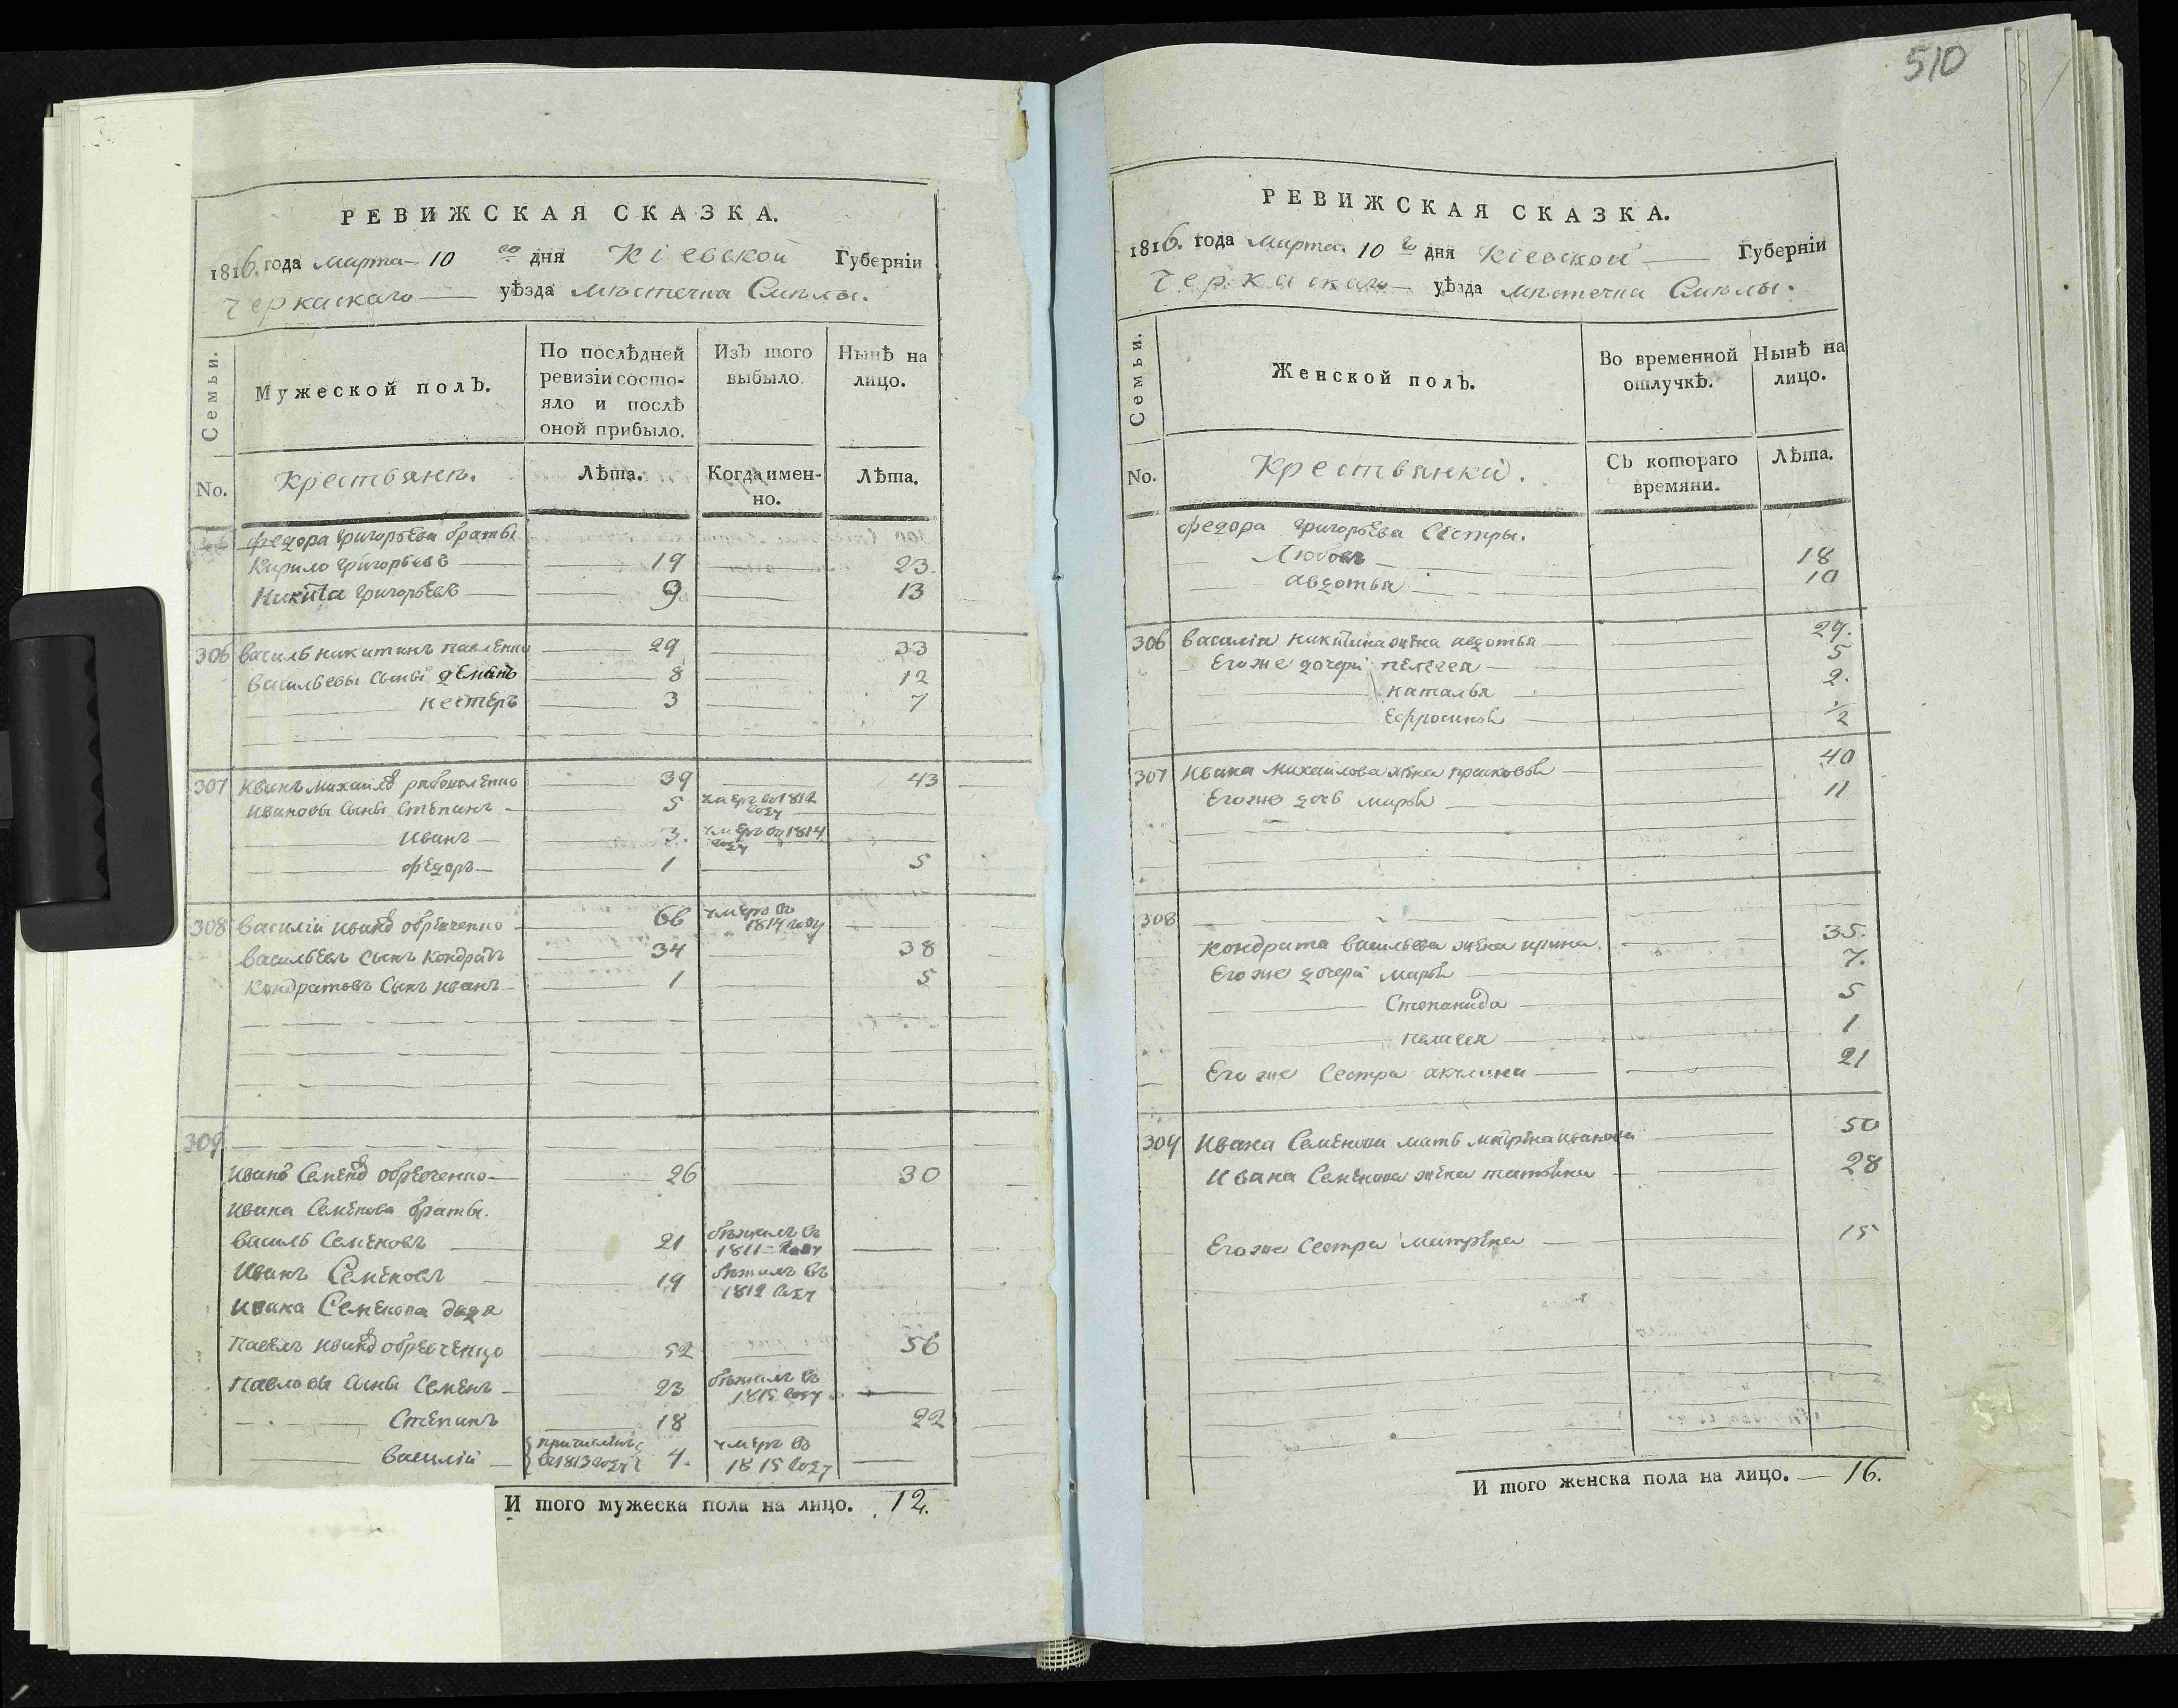 510
РЕВИЖСКАЯ СКАЗКА.
1816. года марта 10 го дня Кіевской Губерніи
Черкаскаго уѣзда мѣстечка Смѣлы.
Семьи.
Мужеской полЪ.
По послѣдней ревизіи состо-
яло и послѣ оной прибыло.
ИзЪ того выбыло.
НынѣЪ на лицо.
No.
Крестьянъ.
Лѣта.
Когда имен-
но.
Лѣта.
Федора Григорьева братьі
Кирило Григорьевъ 19 23.
Никита Григорьевъ 9 13
306 Василь Никитинъ Павленко 29 33
Васильевы сыны Демянъ 8 12
Нестеръ 3 7
307 Иванъ Михайловъ 39 43
Ивановы сыны Степанъ 5 умеръ въ 1812 году
Иванъ 3. умеръ въ 1814 году
Федоръ 1 5
308 Василій Ивановъ 66 умеръ въ 1814 году
Васильевъ сынъ Кондратъ 34 38
Кондратовъ сынъ Иванъ 1 5
309
Иванъ Семеновъ 26 30
Ивана Семенова братьі.
Василь Семеновъ 21 бѣжалъ въ 1811 = году
Иванъ Семеновъ 19 бѣжалъ въ 1812 году
Ивана Семенова дядя
Павелъ Ивановъ 52 56
Павловы сыны Семенъ 23 бѣжалъ въ 1815 году
Степанъ 18 22
Василій причисленъ въ 1813 году 4. умеръ въ 1815 году
И того мужеска пола на лицо. 12.
РЕВИЖСКАЯ СКАЗКА.
1816. года марта 10 го дня Кіевской Губерніи
Черкаскаго уѣзда мѣстечка Смѣлы.
Семьи.
Женской полЪ.
Во временной отлучкѣ.
Нынѣ на лицо.
No.
Крестьянки.
СЪ котораго времяни.
Лѣта.
Федора Григорьева сестры.
Любовь 18
Авдотья 10
306 Василія Никитина жена Авдотья 29.
Его же дочери Пелегея 5
Наталья 2.
Ефросинья 1/2
307 Ивана Михайлова жена Прасковья 40
Его же дочь Марья 11
308
Кондрата Васильева жена Ирина. 35.
Его же дочери Марья 7.
Степанида 5
Пелагея 1
Его же сестра Акулина 21
309 Ивана Семенова мать Матрена Иванова 50
Ивана Семенова жена Татьяна 28
Его же сестра Матрена 15
И того женска пола на лицо. 16.